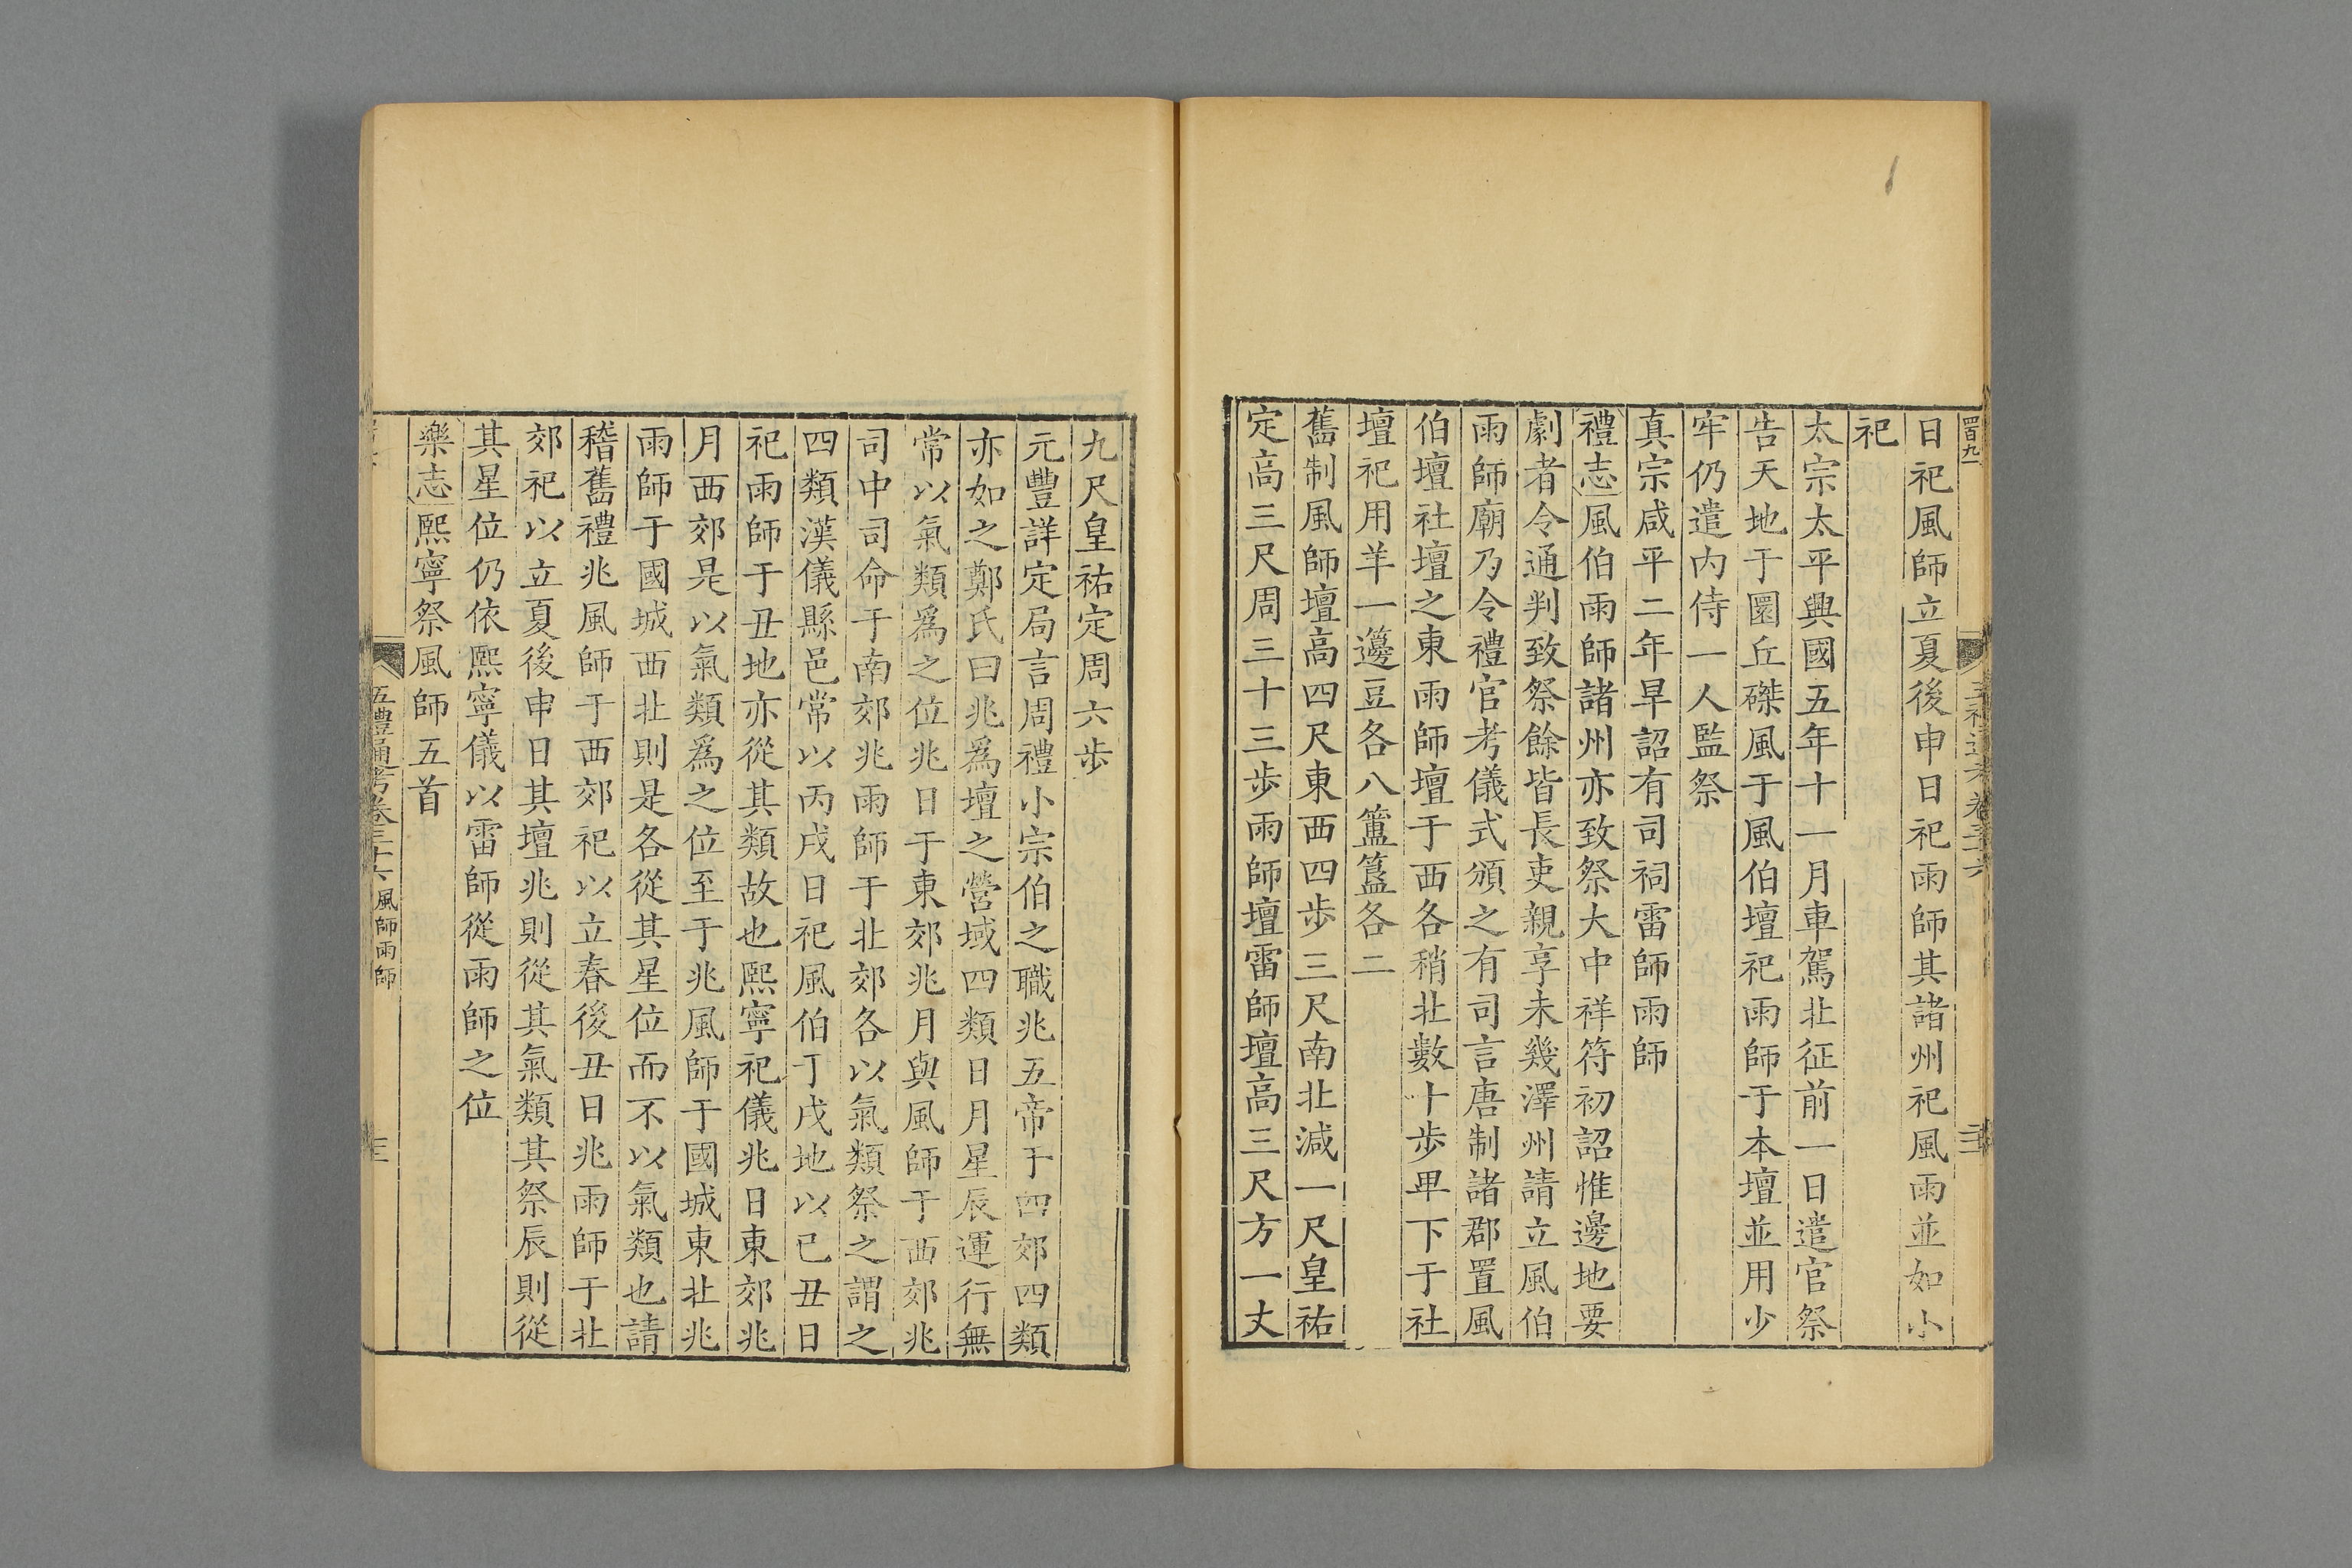 四百九一
日祀風師立夏後申日祀雨師其諸州祀風雨並如小
祀
太宗太平興國五年十一月車駕北征前一日遣官祭
告天地于圜丘磔風于風伯壇祀雨師于本壇並用少
牢仍遣内侍一人監祭
真宗咸平二年旱詔有司祠雷師雨師
禮志風伯雨師諸州亦致祭大中祥符初詔惟邊地要
劇者令通判致祭餘皆長吏親享未幾澤州請立風伯
雨師廟乃令禮官考儀式頒之有司言唐制諸郡置風
伯壇社壇之東雨師壇于西各稍北數十步卑下于社
壇祀用羊一籩豆各八簠簋各二
舊制風師壇高四尺東西四步三尺南北減一尺皇祐
定高三尺周三十三步雨師壇雷師壇高三尺方一丈
九尺皇祐定周六步
元豐詳定局言周禮小宗伯之職兆五帝于四郊四類
亦如之鄭氏曰兆爲壇之營域四類日月星辰運行無
常以氣類爲之位兆日于東郊兆月與風師于西郊兆
司中司命于南郊兆雨師于北郊各以氣類祭之謂之
四類漢儀縣邑常以丙戌日祀風伯于戌地以己丑日
祀雨師于丑地亦從其類故也熙寧祀儀兆日東郊兆
月西郊是以氣類爲之位至于兆風師于國城東北兆
雨師于國城西北則是各從其星位而不以氣類也請
稽舊禮兆風師于西郊祀以立春後丑日兆雨師于北
郊祀以立夏後申日其壇兆則從其氣類其祭辰則從
其星位仍依熙寧儀以雷師從雨師之位
樂志熙寧祭風師五首
五禮通考卷三十六 風師雨師